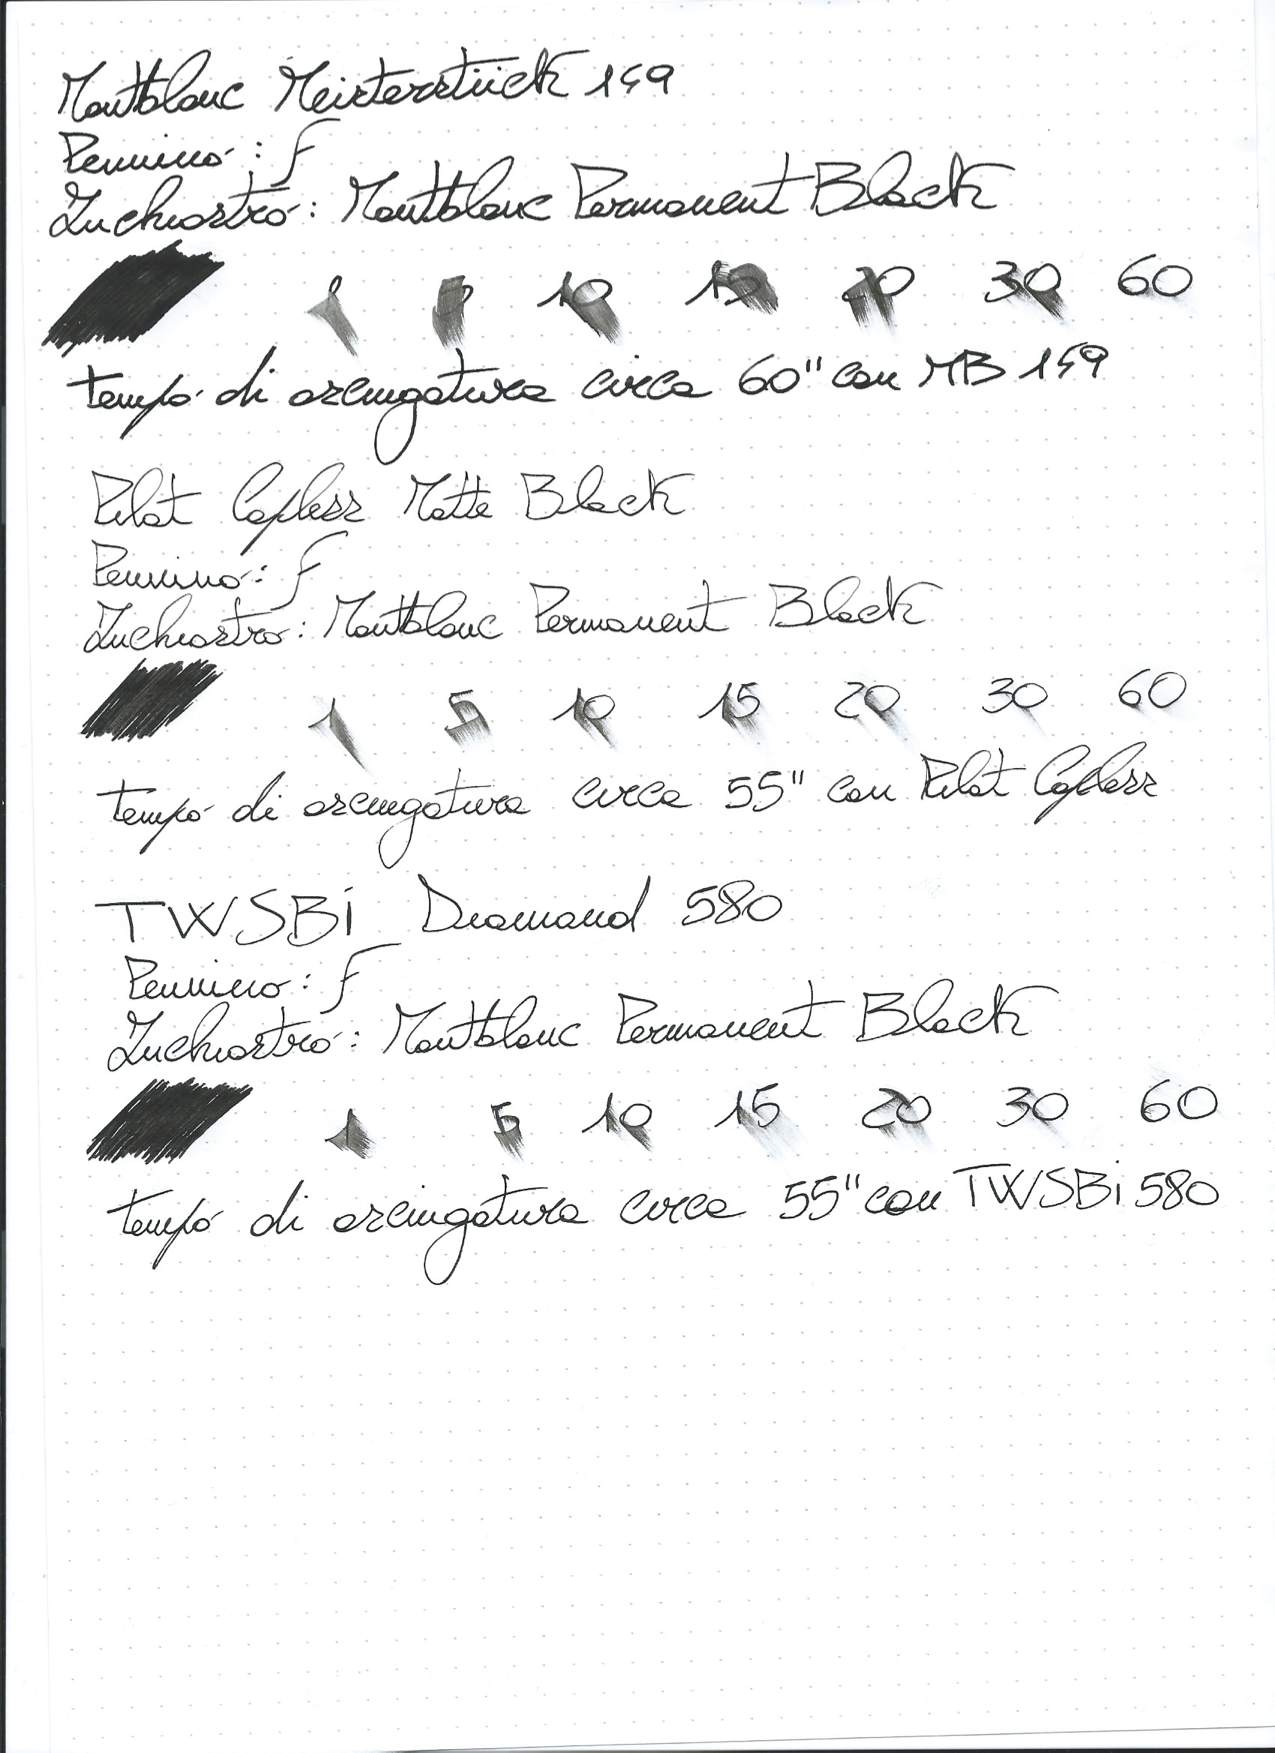 Montblanc Meisterstück 149
Pennino: F
Inchiostro: Montblanc Permanent Black
1 5 10 15 20 30 60
tempo di asciugatura circa 60" con MB 149
Pilot Capless Matte Black
Pennino: F
Inchiostro: Montblanc Permanent Black
1 5 10 15 20 30 60
tempo di asciugatura circa 55" con Pilot Capless
TWSBi Diamand 580
Pennino: F
Inchiostro: Montblanc Permanent Black
1 5 10 15 20 30 60
tempo di asciugatura circa 55" con TWSBi 580